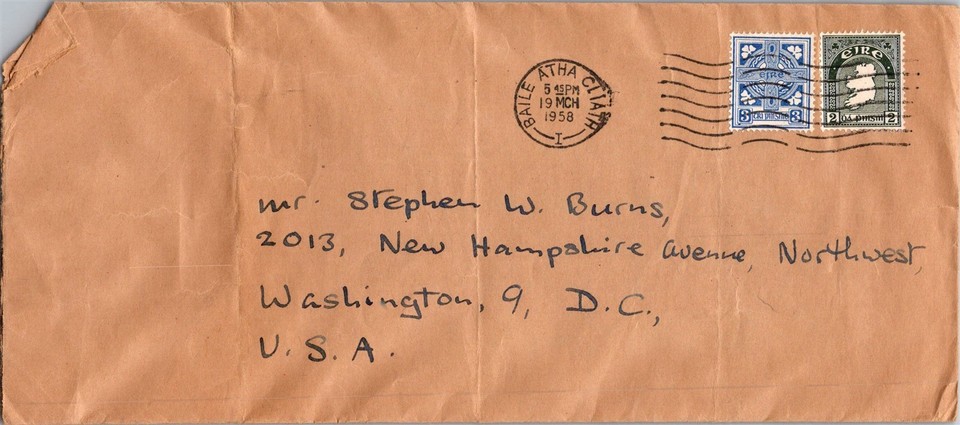 BAILE ATHA CLIATH
5 45 PM
19 MCH
1958
I
éire
3 trí pingine 3
éire
2 dá pingin 2
Mr. Stephen W. Burns,
2013, New Hampshire Avenue, Northwest,
Washington, 9, D.C.,
U.S.A.